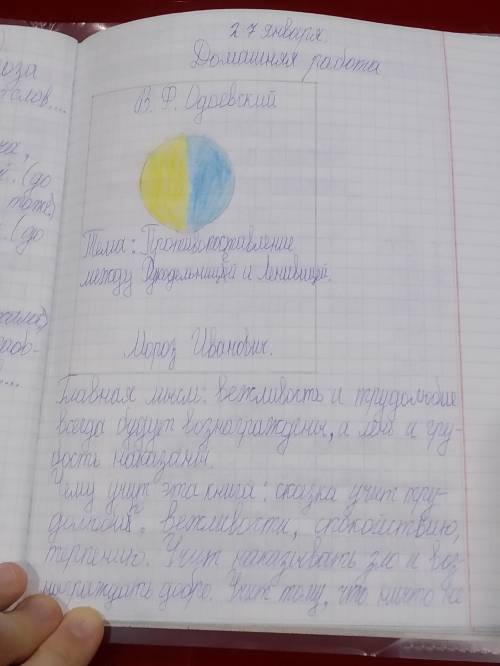 27 января.
Домашняя работа
В. Ф. Одоевский
Тема: Противопоставление
между Рукодельницей и Ленивицей.
Мороз Иванович.
Главная мысль: вежливость и трудолюбие
всегда будут вознаграждены, а лень и гру-
бость наказаны.
Чему учит эта книга: сказка учит тру-
долюбию, вежливости, спокойствию,
терпению. Учит наказывать зло и воз-
награждать добро. Учит тому, что ничто не
оза
слов....
ча,
й. (до
тоже)
. (до